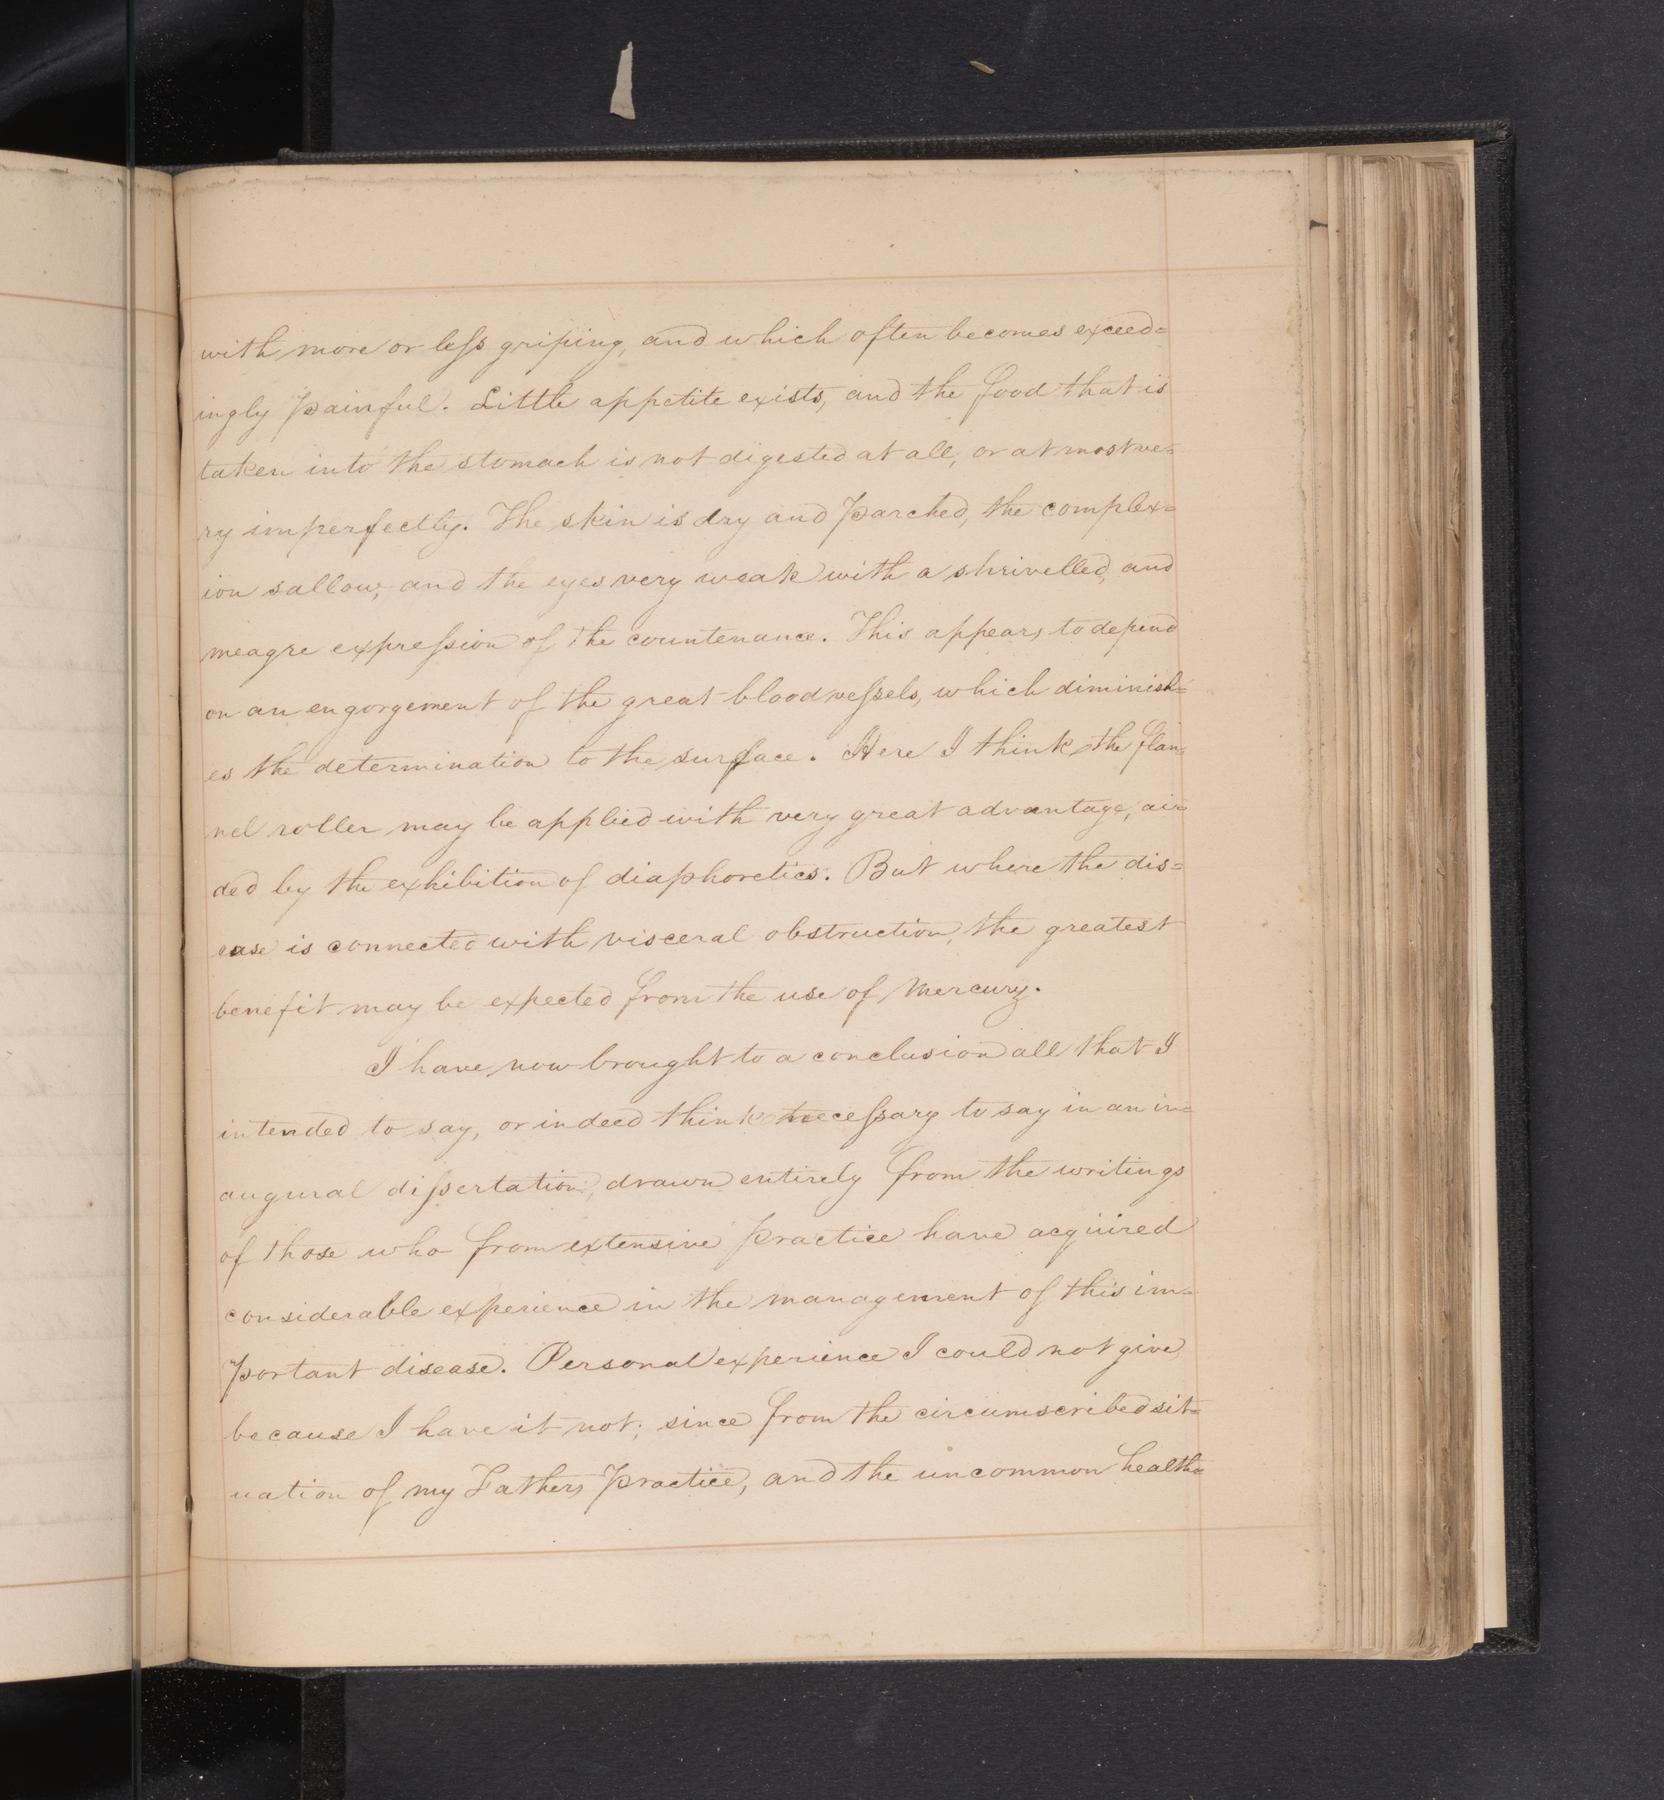 with more or less griping, and which often becomes exceed=
ingly painful. Little appetite exists, and the food that is
taken into the stomach is not digested at all, or at most ve=
ry imperfectly. The skin is dry and parched, the complex=
ion sallow, and the eyes very weak with a shrivelled, and
meagre expression of the countenance. This appears to depend
on an engorgement of the great blood vessels, which diminish=
es the determination to the surface. Here I think the flan=
nel roller may be applied with very great advantage, ai=
ded by the exhibition of diaphoretics. But where the dis=
ease is connected with visceral obstruction, the greatest
benefit may be expected from the use of Mercury.
I have now brought to a conclusion all that I
intended to say, or indeed think necessary to say in an in=
augural dissertation, drawn entirely from the writings
of those who from extensive practice have acquired
considerable experience in the management of this im=
portant disease. Personal experience I could not give,
because I have it not; since from the circumscribed sit=
uation of my Fathers Practice, and the uncommon health=